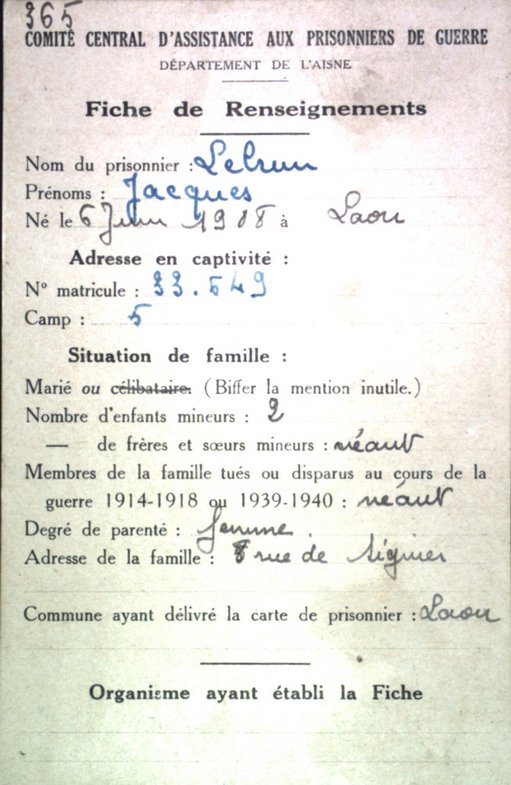 365
COMITÉ CENTRAL D'ASSISTANCE AUX PRISONNIERS DE GUERRE
DÉPARTEMENT DE L'AISNE
Fiche de Renseignements
Nom du prisonnier : Lebrun
Prénoms : Jacques
Né le 6 Juin 1908 à Laon
Adresse en captivité :
N° matricule : 33.549
Camp : 5
Situation de famille :
Marié ou célibataire. (Biffer la mention inutile.)
Nombre d'enfants mineurs : 2
— de frères et sœurs mineurs : néant
Membres de la famille tués ou disparus au cours de la
guerre 1914-1918 ou 1939-1940 : néant
Degré de parenté : femme.
Adresse de la famille : 8 rue de
Commune ayant délivré la carte de prisonnier : Laon
Organisme ayant établi la Fiche